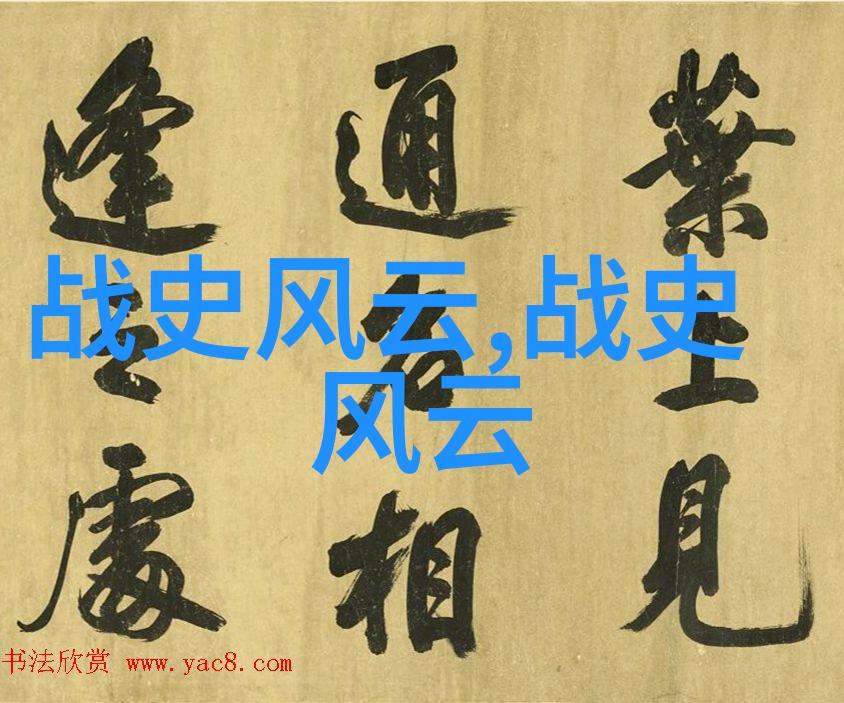 葉上見
通名相
逢處
战史风云,战史
风云
书法欣赏 www.yac8.com